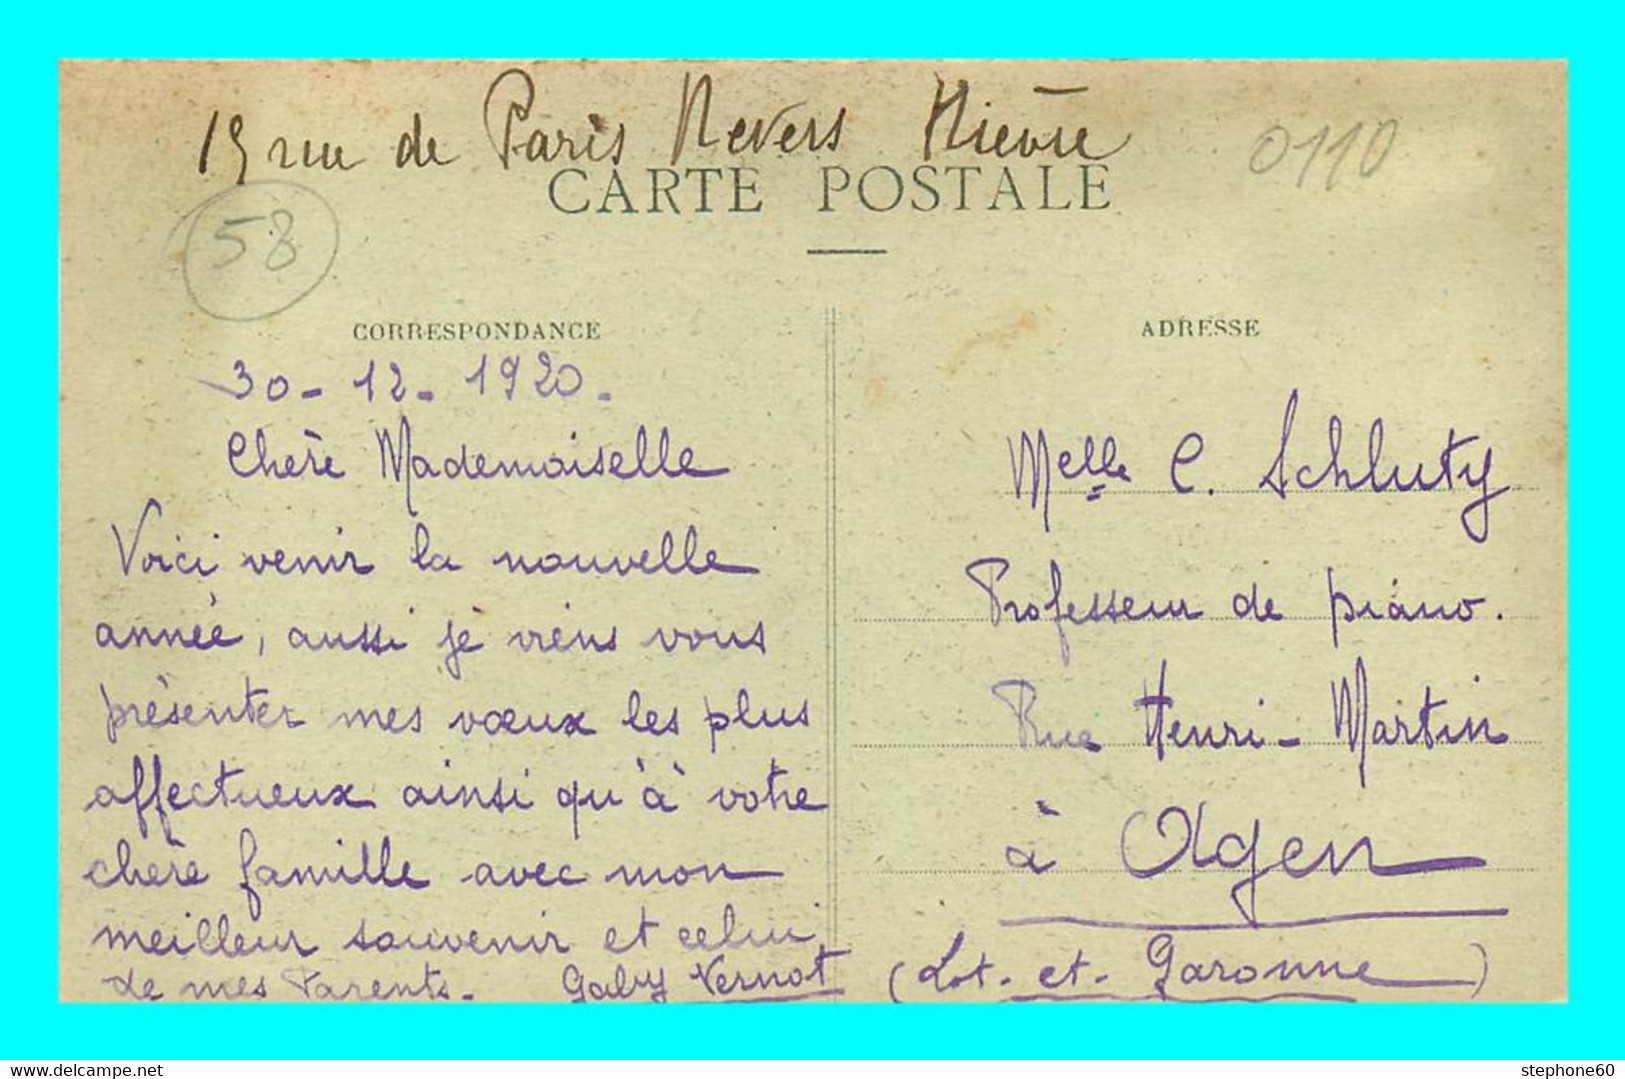 15 rue de Paris Nevers Nièvre
0110
CARTE POSTALE
58
CORRESPONDANCE
30-12-1920.
Chère Mademoiselle
Voici venir la nouvelle
année, aussi je viens vous
présenter mes vœux les plus
affectueux ainsi qu'à votre
chère famille avec mon
meilleur souvenir et celui
de mes Parents. Gaby Vernot
ADRESSE
Melle C. Schluty
Professeur de piano.
Rue Henri-Martin
à Agen
(Lot-et-Garonne)
www.delcampe.net
stephone60